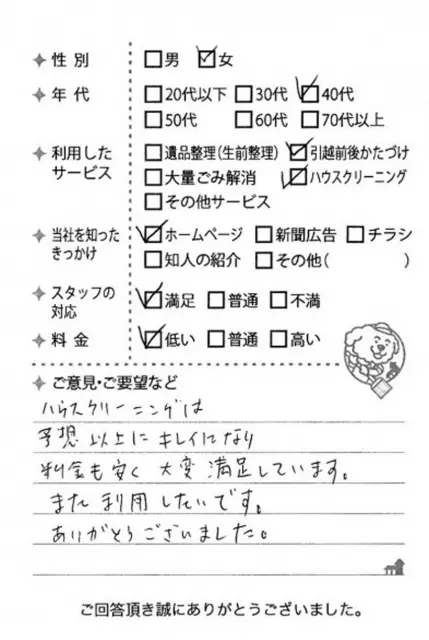 性別 □男 ☑女
年代 □20代以下 □30代 ☑40代
□50代 □60代 □70代以上
利用したサービス □遺品整理(生前整理) ☑引越前後かたづけ
□大量ごみ解消 ☑ハウスクリーニング
□その他サービス
当社を知ったきっかけ ☑ホームページ □新聞広告 □チラシ
□知人の紹介 □その他( )
スタッフの対応 ☑満足 □普通 □不満
料金 ☑低い □普通 □高い
ご意見・ご要望など
ハウスクリーニングは
予想以上にキレイになり
料金も安く大変満足しています。
また利用したいです。
ありがとうございました。
ご回答頂き誠にありがとうございました。